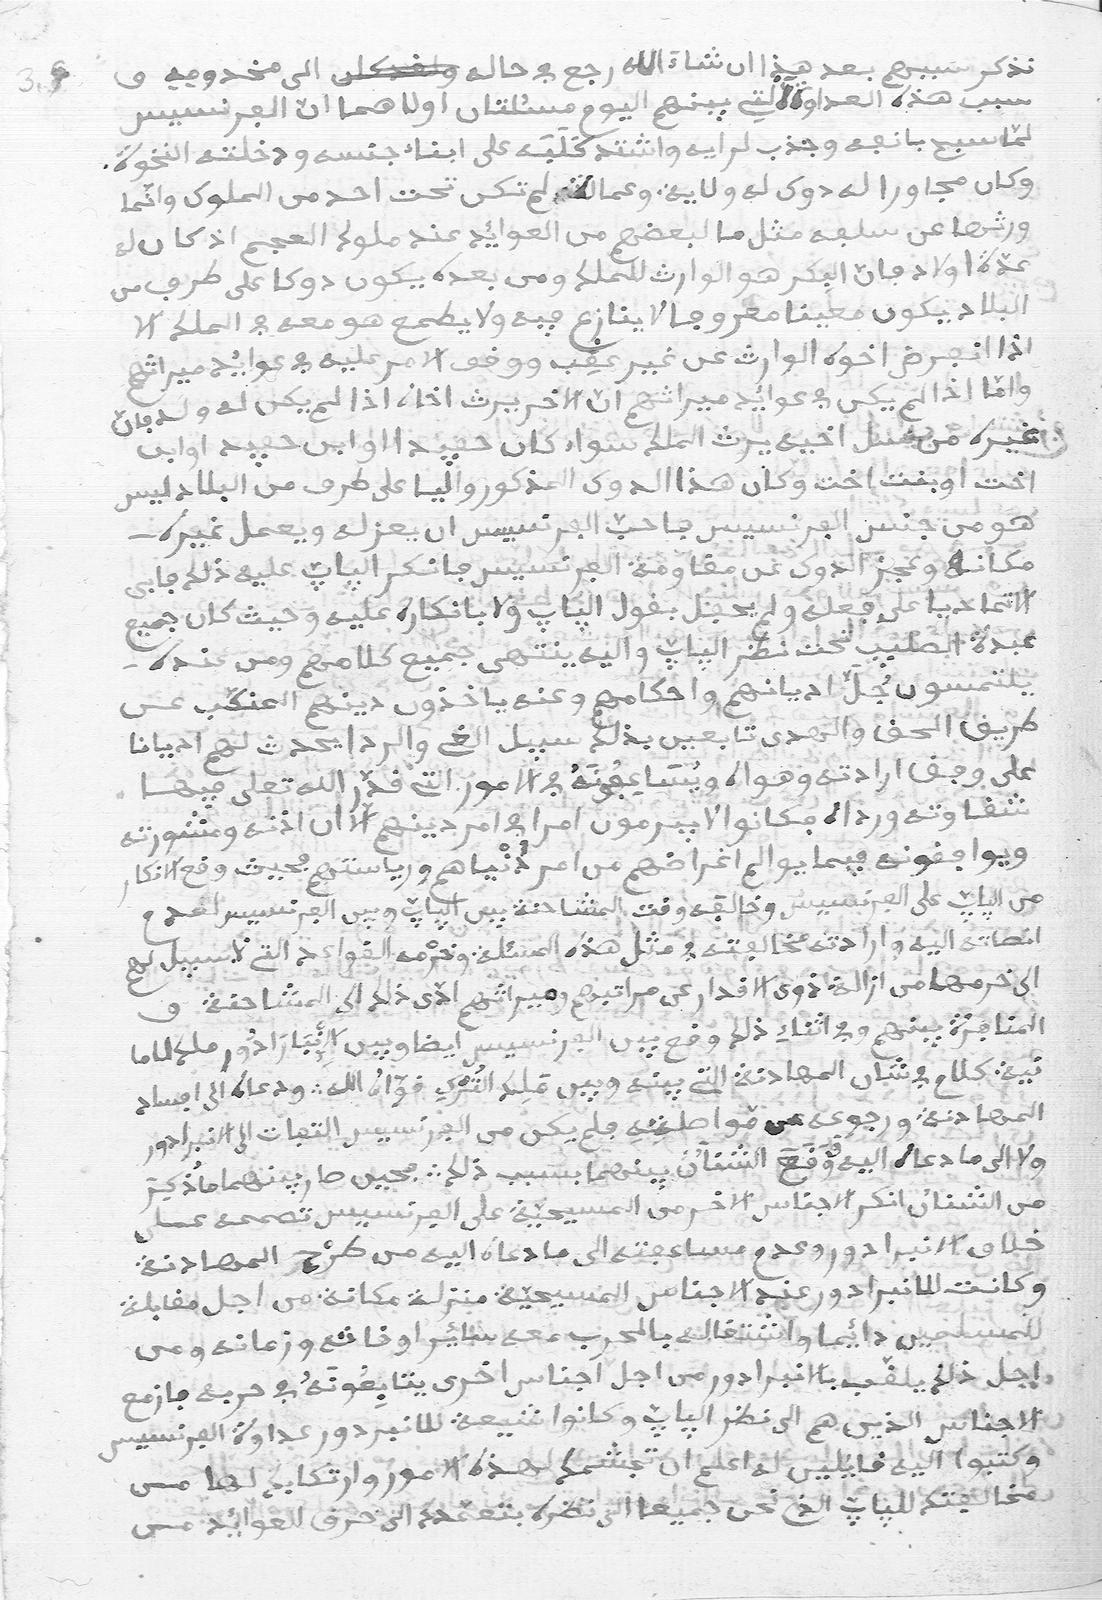 نذكر سببهم بعد هذا ان شاء الله رجع في حاله ولفد كلى الى مخدوميه و
سبب هذه العداوة التي بينهم اليوم مسئلتان اولاهما ان الفرنسيس
لما سمح بانفه وجذب لرايه واشتد كلبه على ابناء جنسه ودخلته النخوة
وكان مجاورا له دوك له ولاية وعمالة لم تكن تحت احد من الملوك وانما
ورثها عن سلفه مثل ما لبعضهم من العوائد عند ملوك العجم اذ كان له
عدة اولاد فان البكر هو الوارث للملك ومن بعده يكون دوكا على طرف من
البلاد يكون معينا معروفا لا ينازع فيه ولا يطمع هو معه في الملك الا
اذا انفرض اخوه الوارث عن غير عقب ووقف الامر عليه في عوائد ميراثهم
واما اذا لم يكن في عوائد ميراثهم ان الاخ يرث اخاه اذا لم يكن له ولد فان
غيره من نسل اخيه يرث الملك سواء كان حفيدا او ابن حفيد او ابن
اخت او بنت اخت وكان هذا الدوك المذكور واليا على طرف من البلاد ليس
هو من جنس الفرنسيس فاحب الفرنسيس ان يعزله ويعمل غيره
مكانه وعجز الدوك عن مقاومة الفرنسيس فانكر الپاپ عليه ذلك فابى
الا تماديا على فعله ولم يحفل بقول الپاپ ولا بانكاره عليه وحيث كان جميع
عبدة الصليب تحت نظر الپاپ واليه ينتهي جميع كلامهم ومن عنده
يلتمسون جل اديانهم واحكامهم وعنه ياخذون دينهم المنكب عن
طريق الحق والهدى تابعين بذلك سبيل الغي والردا يحدث لهم اديانا
على وفق ارادته وهواه ويساعفونه في الامور التي قدر الله تعلى فيها
شقاوته ورداه فكانوا لا يبرمون امرا في امر دينهم الا ان اذنه ومشورته
ويوافقونه فيما يوالم اغراضهم من امر دنياهم ورياستهم فحيث وقع الانكار
من الپاپ على الفرنسيس وخالفه وقت المشاحنة بين الپاپ وبين الفرنسيس لعدم
انصاته اليه وارادته مخالفته في مثل هذه المسئلة وخرمه القواعد التي لا سبيل لهم
الى خرمها من ازالة ذوي الاقدار عن مراتبهم وميراثهم ادى ذلك الى المشاحنة و
المنافرة بينهم وفي اثناء ذلك وقع بين الفرنسيس ايضا وبين الانبرادور ملك لاما
نية كلام في شان المهادنة التي بينه وبين ملك الترك قواه الله ودعاه الى افساد
المهادنة ورجوعه عن مواصلته فلم يكن من الفرنسيس التفات الى الانبرادور
ولا الى ما دعاه اليه فوقع الشنآن بينهما بسبب ذلك فحين صار بينهما ما ذكر
من الشنآن انكر الاجناس الاخر من المسيحية على الفرنسيس تصممه على
خلاف الانبرادور وعدم مساعفته الى ما دعاه اليه من طرح المهادنة
وكانت للانبرادور عند الاجناس المسيحية منزلة مكانة من اجل مقابلة
للمسلمين دائما واشتغاله بالحرب معه سائر اوقاته وزمانه ومن
اجل ذلك يلقب بالانبرادور من اجل اجناس اخرى يتابعونه في حربه فازمع
الاجناس الذين هم الى نظر الپاپ وكانوا شيعة للانبردور عداوة الفرنسيس
وكتبوا اليه قايلين له اعلم ان تجشمك لهذه الامور وارتكابك لها من
مخالفتك للپاپ الذي نحن جميعا الى نظره بتعمدك الى خرق العوائد من